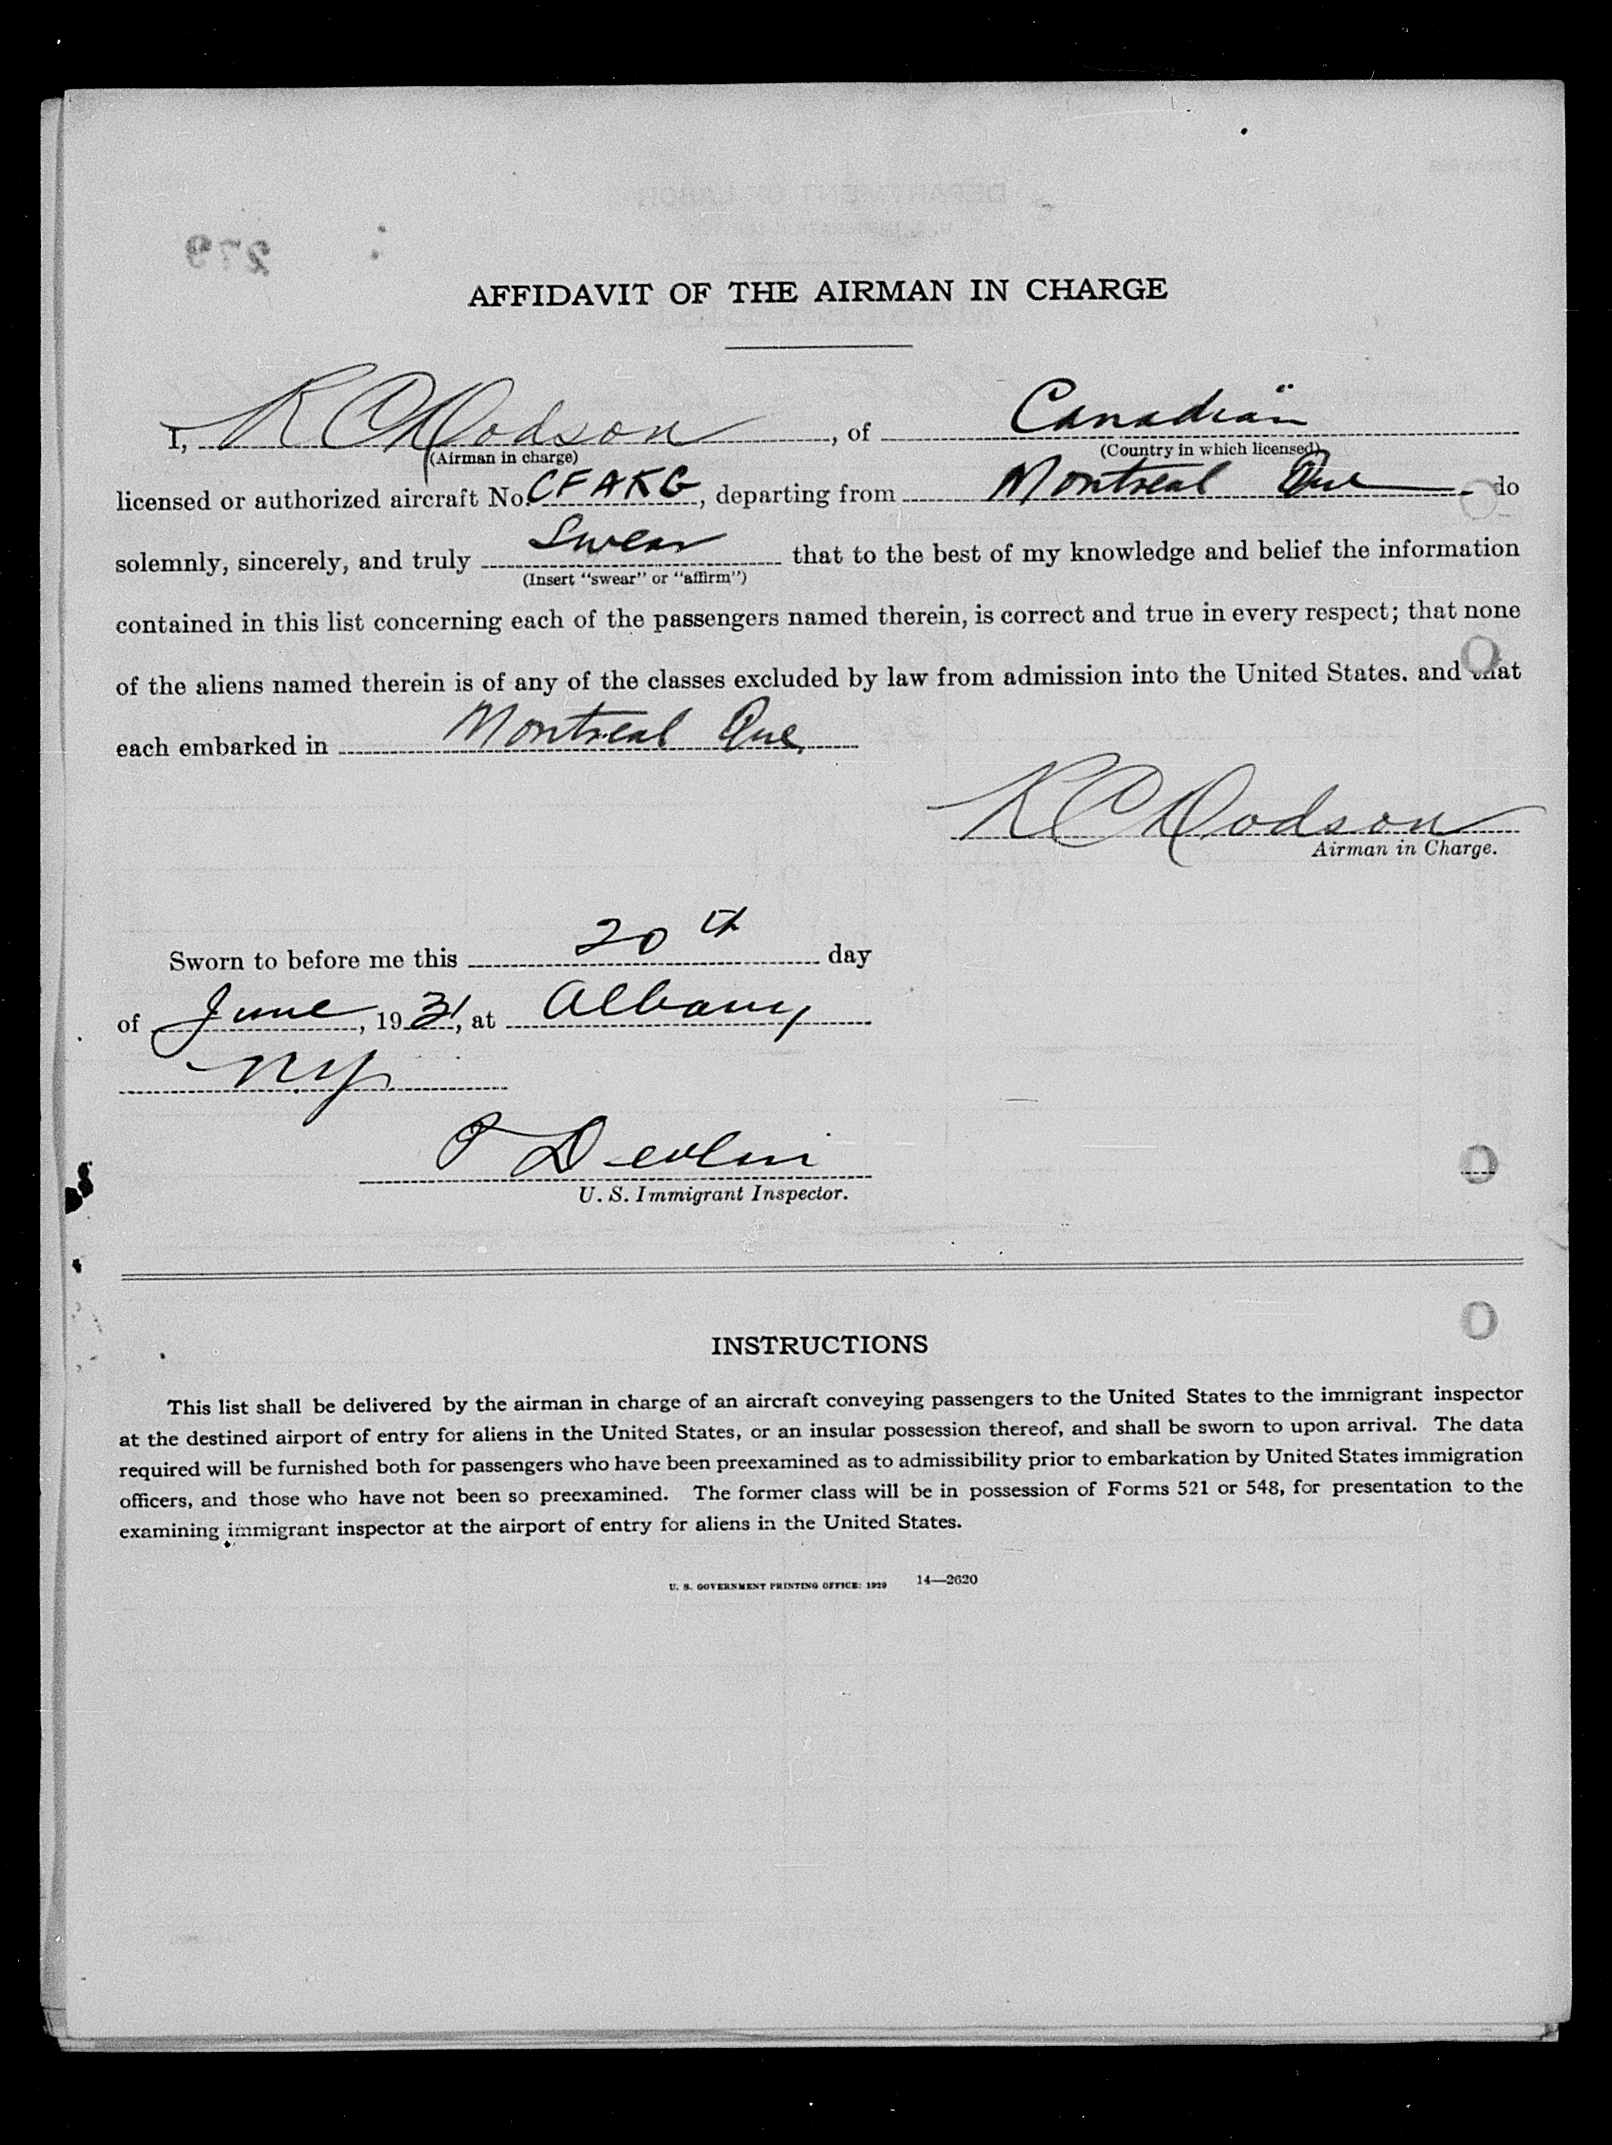 279
AFFIDAVIT OF THE AIRMAN IN CHARGE
I, R C Dodson, of Canadian
(Airman in charge) (Country in which licensed)
licensed or authorized aircraft No. CFAKG, departing from Montreal Que do
solemnly, sincerely, and truly Swear that to the best of my knowledge and belief the information
(Insert "swear" or "affirm")
contained in this list concerning each of the passengers named therein, is correct and true in every respect; that none
of the aliens named therein is of any of the classes excluded by law from admission into the United States. and that
each embarked in Montreal Que.
R C Dodson
Airman in Charge.
Sworn to before me this 20th day
of June, 1931, at Albany
N.Y.
P Devlin
U. S. Immigrant Inspector.
INSTRUCTIONS
This list shall be delivered by the airman in charge of an aircraft conveying passengers to the United States to the immigrant inspector
at the destined airport of entry for aliens in the United States, or an insular possession thereof, and shall be sworn to upon arrival. The data
required will be furnished both for passengers who have been preexamined as to admissibility prior to embarkation by United States immigration
officers, and those who have not been so preexamined. The former class will be in possession of Forms 521 or 548, for presentation to the
examining immigrant inspector at the airport of entry for aliens in the United States.
U. S. GOVERNMENT PRINTING OFFICE: 1929 14—2620